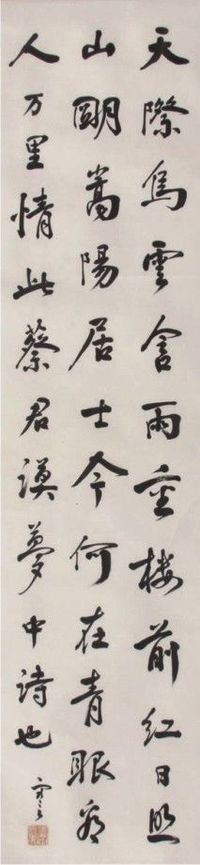 天際烏雲含雨重楼前紅日照
山朙嵩陽居士今何在青眼看
人万里情此蔡君謨夢中詩也